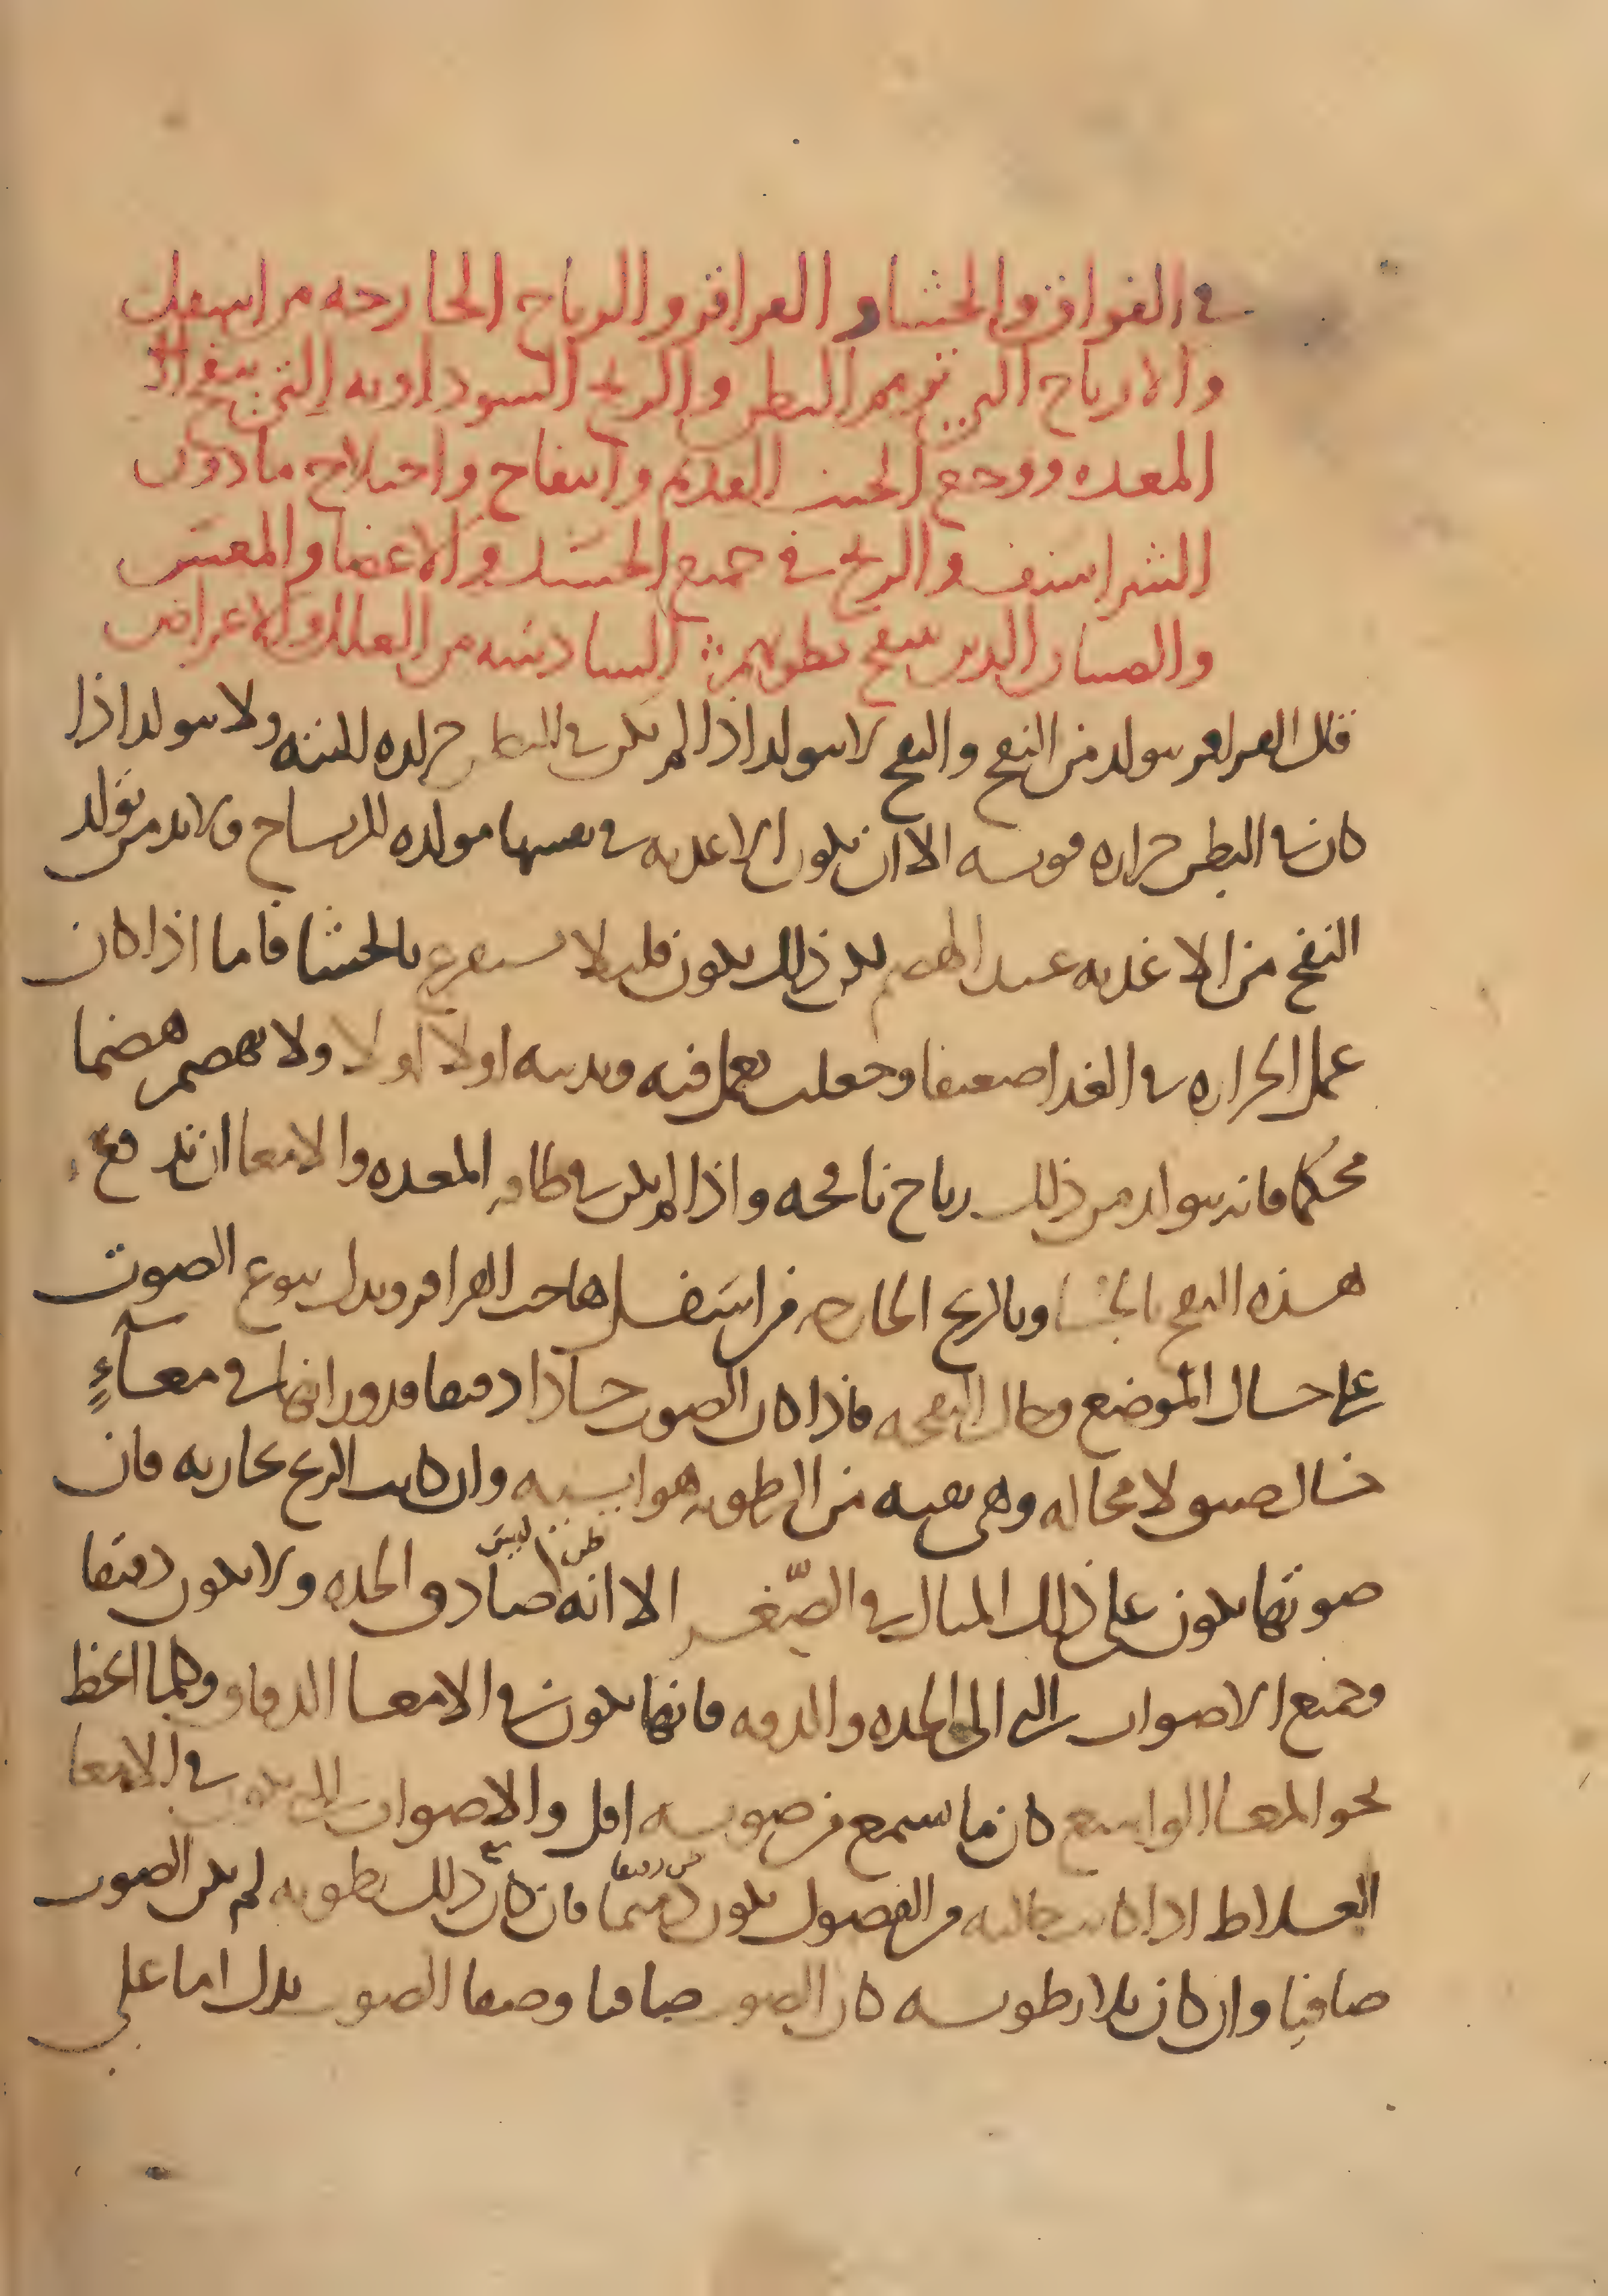 في الفواق والجشا و القراقر والرياح الخارجه من اسفل
والارياح التي تورم البطن والريح السوداويه التي تنفخ
المعده ووجع الجنب القديم وانتفاخ واختلاج ما دون
الشراسيف والريح في جميع الجسد والاعضا والمعتبر
والصبيان الذين تنتفخ بطونهم السادسه من العلل والاعراض
قال القراقر يتولد من النفخ والنفخ لا يتولد اذا لم يكن في البطن حراره البته ولا يتولد اذا
كان في البطن حراره قويه الا ان يكون الاغذيه في نفسها مولده للرياح ولا بد من تولد
النفخ من الاغذيه عند الهضم لكن ذلك يكون قليلا يستفرغ بالجشا فاما اذا كان
عمل الحراره في الغذا ضعيفا وجعلت تعمل فيه وتذيبه اولا اولا ولا تهضمه هضما
محكما فانه يتولد من ذلك رياح نافخه واذا لم يكن في طاقه المعده والامعا ان تدفع
هذه النفخ بالجشا وبالريح الخارجه من اسفل هاجت القراقر ويدل بنوع الصوت
على حال الموضع وحال النفخه فاذا كان الصوت حادا دقيقا فدورانها في معآءٍ
خال ضيق لا محاله وهي نقيه من الرطوبه هوائيه وان كانت الريح بخاريه فان
صوتها يكون على ذلك المثال في الصّغر الا انه ليس صادق الحده ولا يكون دقيقا
وجميع الاصوات التي الى الحده والدقه فانها يكون في الامعا الدقاق وكلما انحط
نحو المعا الواسع كان ما يسمع من صوته اقل والاصوات التي يكون في الامعا
الغلاظ اذا كانت خاليه من الفضول يكون فان كان ذلك رطوبه لم يكن الصوت
صافيا وان كان بلا رطوبه كان الصوت صافيا وصفا الصوت يدل اما على